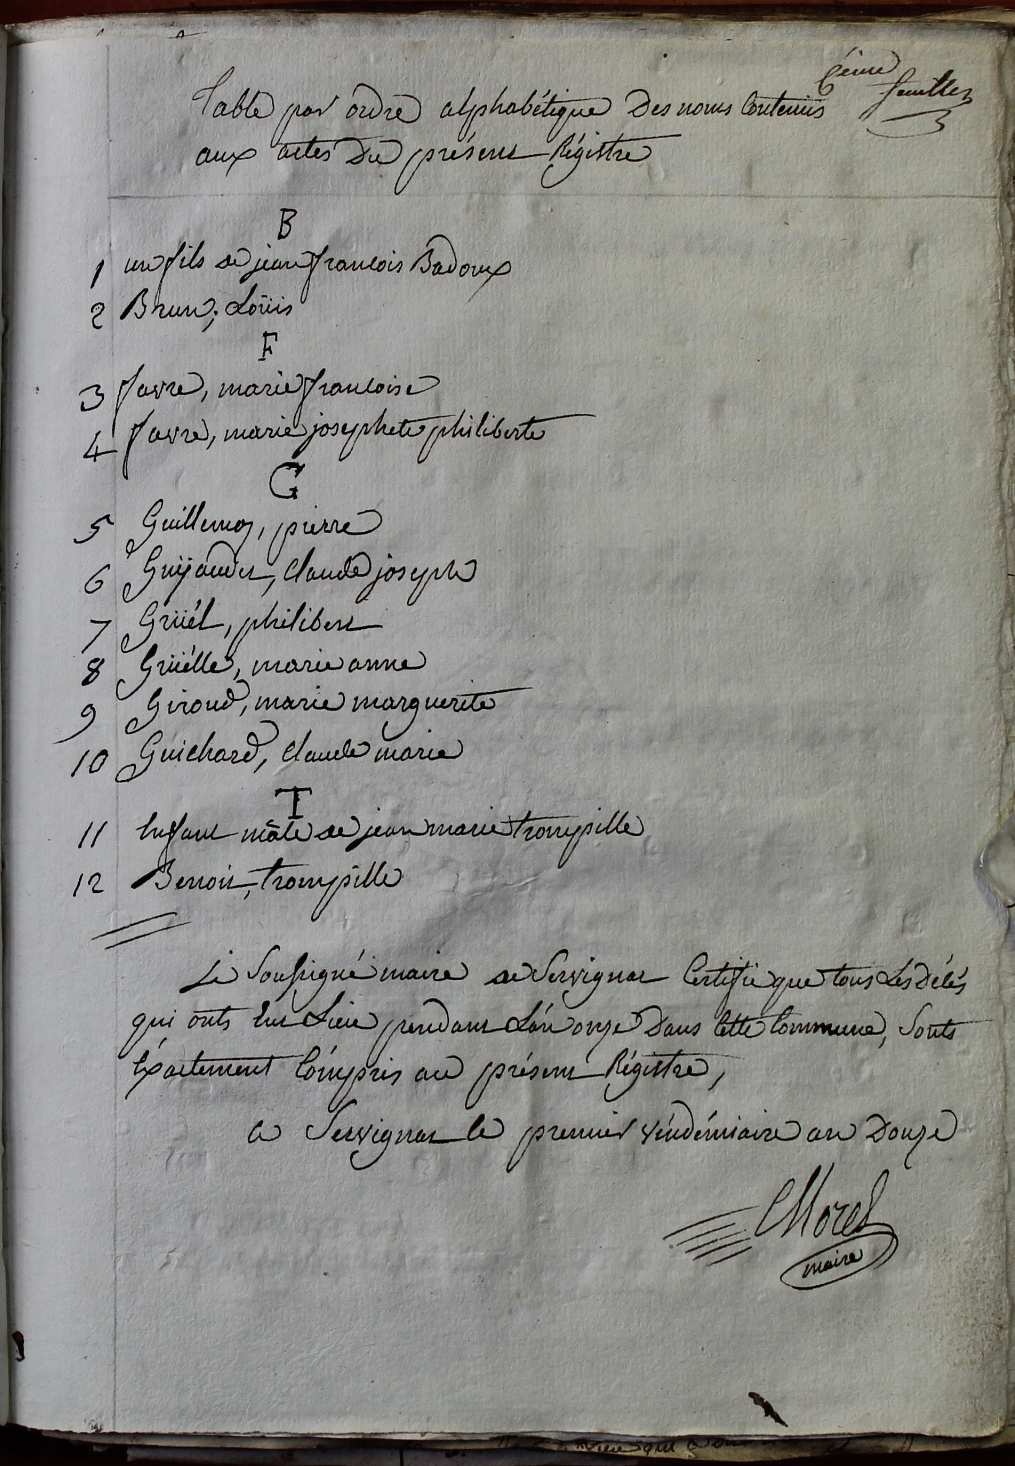 6ème
feuillet
Table par ordre alphabétique Des noms Contenus
aux actes Du présent Régistre
B
1 un fils de jean françois Badoux
2 Brun, Loüis
F
3 favre, marie françoise
4 favre, marie josephete philiberte
G
5 Guillemoz, pierre
6 Guÿaudet, Claude joseph
7 Grüél, philibert
8 Grüélle, marie anne
9 Giroud, marie marguerite
10 Guichard, Claude marie
T
11 Enfant mâle de jean marie trompille
12 Benoit, trompille
Le Soussigné maire de Servignat Certifie que tous Les Décés
qui onts Eut Lieu pendant L'an onze Dans Cette Commune, Sonts
Exactement Compris au présent Régistre,
a Servignat le premier vendémiaire an Douze
CMorel
maire